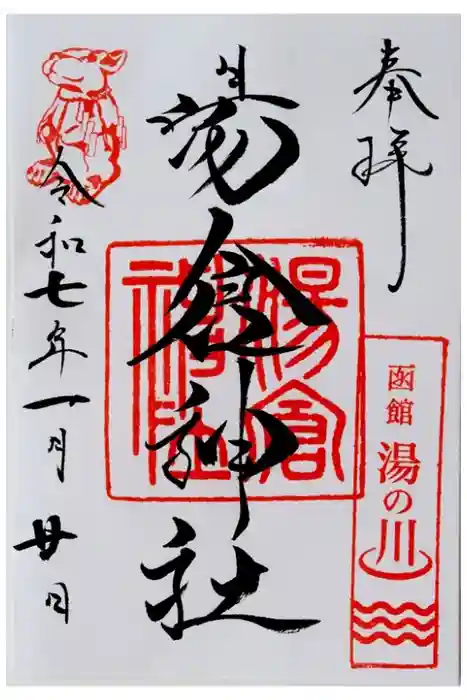 奉拝
湯倉神社
湯倉
神社
函館
湯の川
令和七年一月廿日